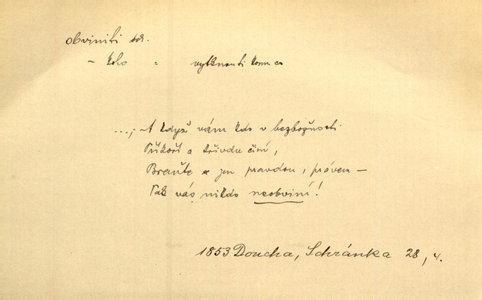 obviniti
– koho = vytknouti komu co
...; A když vám kdo v bezbožnosti
Příkoří a křivdu činí,
Braňte se jen pravdou, právem –
Pak vás nikdo neobviní!
1853 Doucha, Schránka 28, 4.